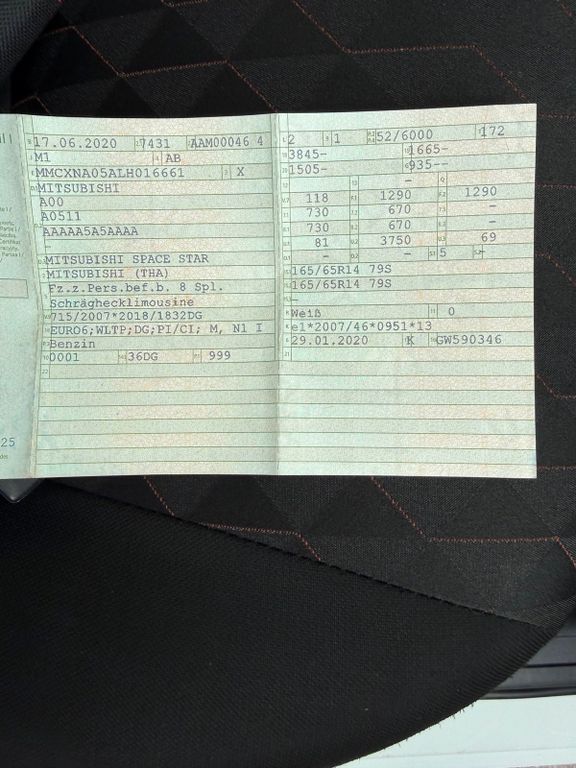 17.06.2020 7431 AAM00046 4
M1 AB
MMCXNA05ALH016661 X
MITSUBISHI
A00
A0511
AAAAA5A5AAAA
–
MITSUBISHI SPACE STAR
MITSUBISHI (THA)
Fz.z.Pers.bef.b. 8 Spl.
Schräghecklimousine
715/2007*2018/1832DG
EURO6;WLTP;DG;PI/CI; M, N1 I
Benzin
0001 36DG 999
22
2 1 52/6000 172
3845– 1665–
1505– 935––
– 
118 1290 1290
730 670 –
730 670 –
81 3750 69
– – 5 –
165/65R14 79S
165/65R14 79S
–
Weiß 0
e1*2007/46*0951*13
29.01.2020 K GW590346
21
25